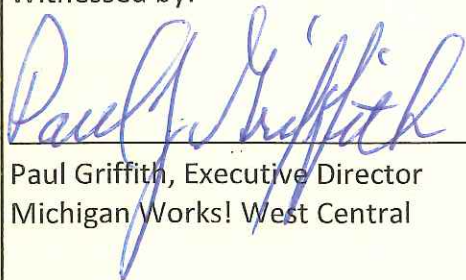 Witnessed by:
Paul J. Griffith
Paul Griffith, Executive Director
Michigan Works! West Central